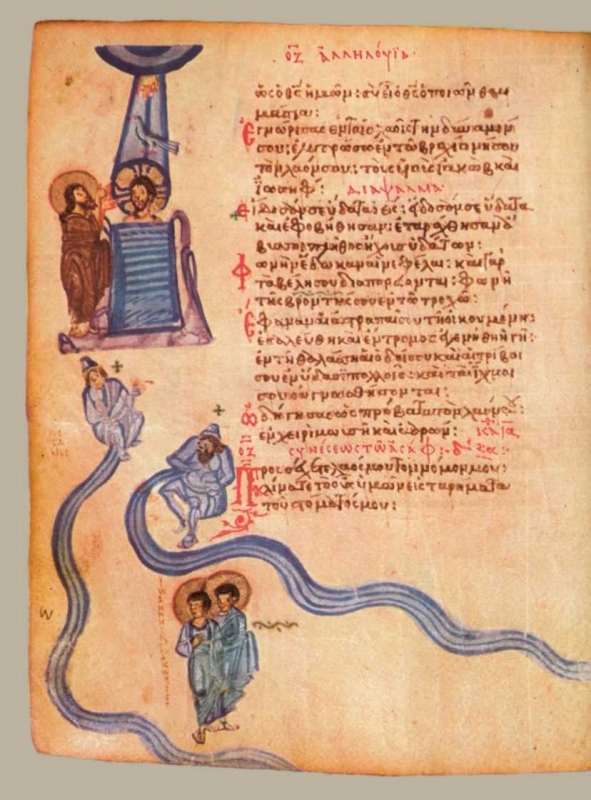 οζ ἀλληλούϊα
ὡς ὁ θς ἡμῶν: σὺ εἶ ὁ θς ὁ ποιῶν θαυ
μάσια:
Ἐγνώρισας ἐν τοῖς λαοῖς τὴν δύναμίν
σου: ἐλυτρώσω ἐν τῷ βραχίονί σου
τὸν λαόν σου: τοὺς υἱοὺς ἰακὼβ καὶ
ἰωσήφ: διάψαλμα
Εἴδοσάν σε ὕδατα ὁ θς: εἴδοσάν σε ὕδατα
καὶ ἐφοβήθησαν: ἐταράχθησαν ἄβ
υσσοι πλῆθος ἤχους ὑδάτων:
Φωνὴν ἔδωκαν αἱ νεφέλαι: καὶ γὰρ
τὰ βέλη σου διαπορεύονται: φωνὴ
τῆς βροντῆς σου ἐν τῷ τροχῷ:
Ἔφαναν αἱ ἀστραπαί σου τῇ οἰκουμένῃ:
ἐσαλεύθη καὶ ἔντρομος ἐγενήθη ἡ γῆ:
ἐν τῇ θαλάσσῃ αἱ ὁδοί σου καὶ αἱ τρίβοι
σου ἐν ὕδασι πολλοῖς: καὶ τὰ ἴχνη
σου οὐ γνωσθήσονται:
Ὡδήγησας ὡς πρόβατα τὸν λαόν σου:
ἐν χειρὶ μωυσῆ καὶ ἀαρών:
οζ συνέσεως τῷ ἀσάφ
Προσέχετε λαός μου τὸν νόμον μου:
κλίνατε τὸ οὖς ὑμῶν εἰς τὰ ῥήματα
τοῦ στόματός μου: